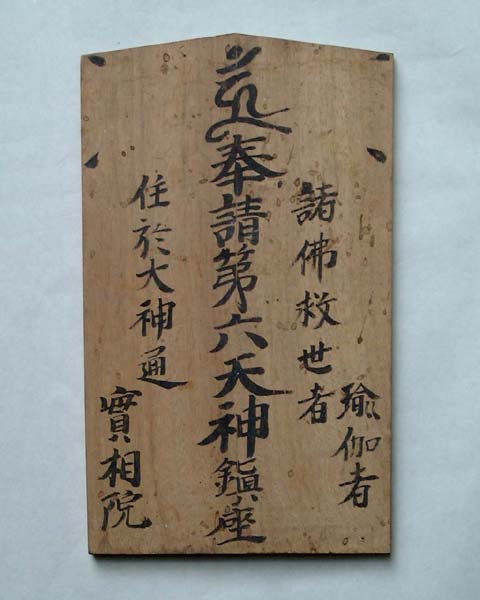 諸佛救世者
瑜伽者
奉請第六天神鎮座
住於大神通
實相院